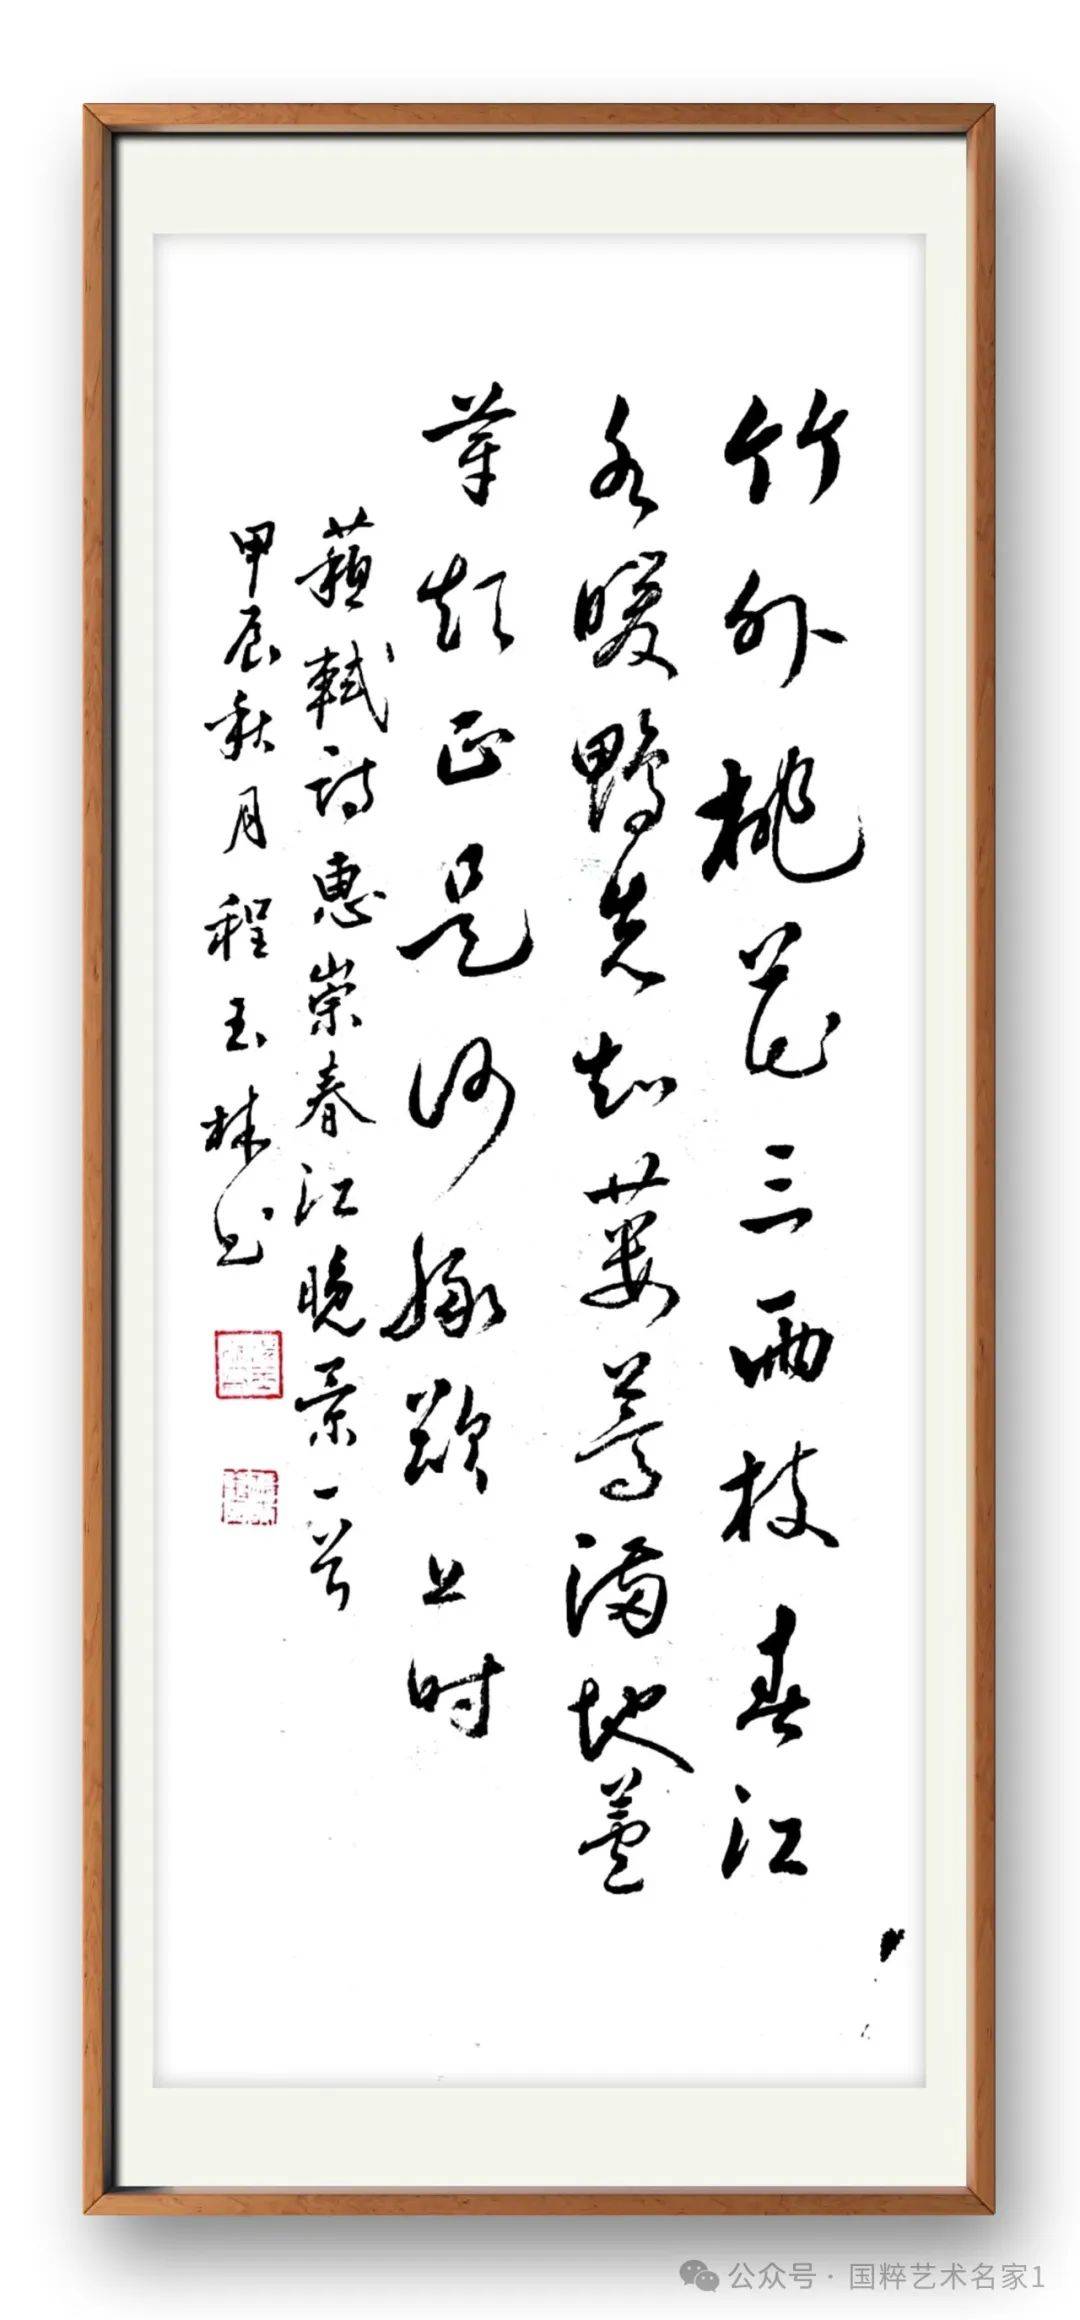 竹外桃花三两枝春江
水暖鴨先知蒌蒿满地蘆
芽短正是河豚欲上时
蘇軾诗惠崇春江晚景一首
甲辰秋月程玉林书
公众号 · 国粹艺术名家1